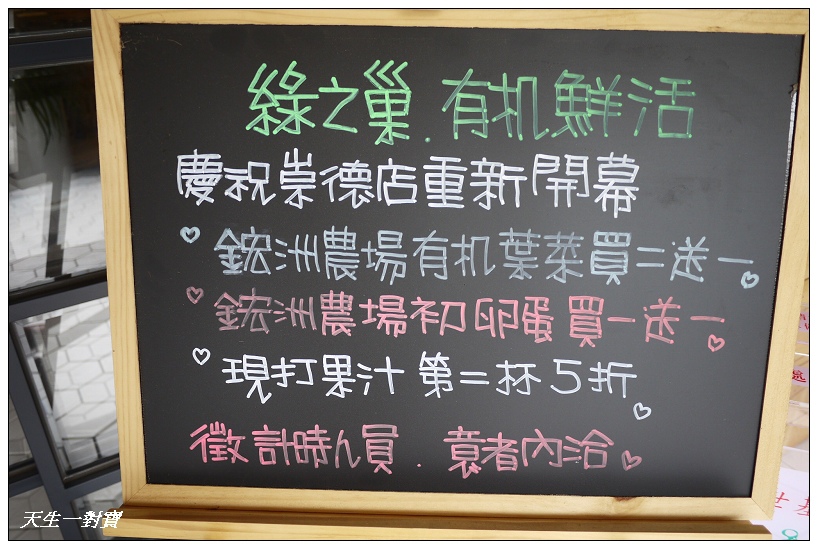 綠之巢.有机鮮活
慶祝崇德店重新開幕
♡鋐洲農場有机葉菜買二送一♡
♡鋐洲農場初卵蛋買一送一♡
♡現打果汁第二杯5折♡
徵計時人員.意者內洽♡
天生一對寶